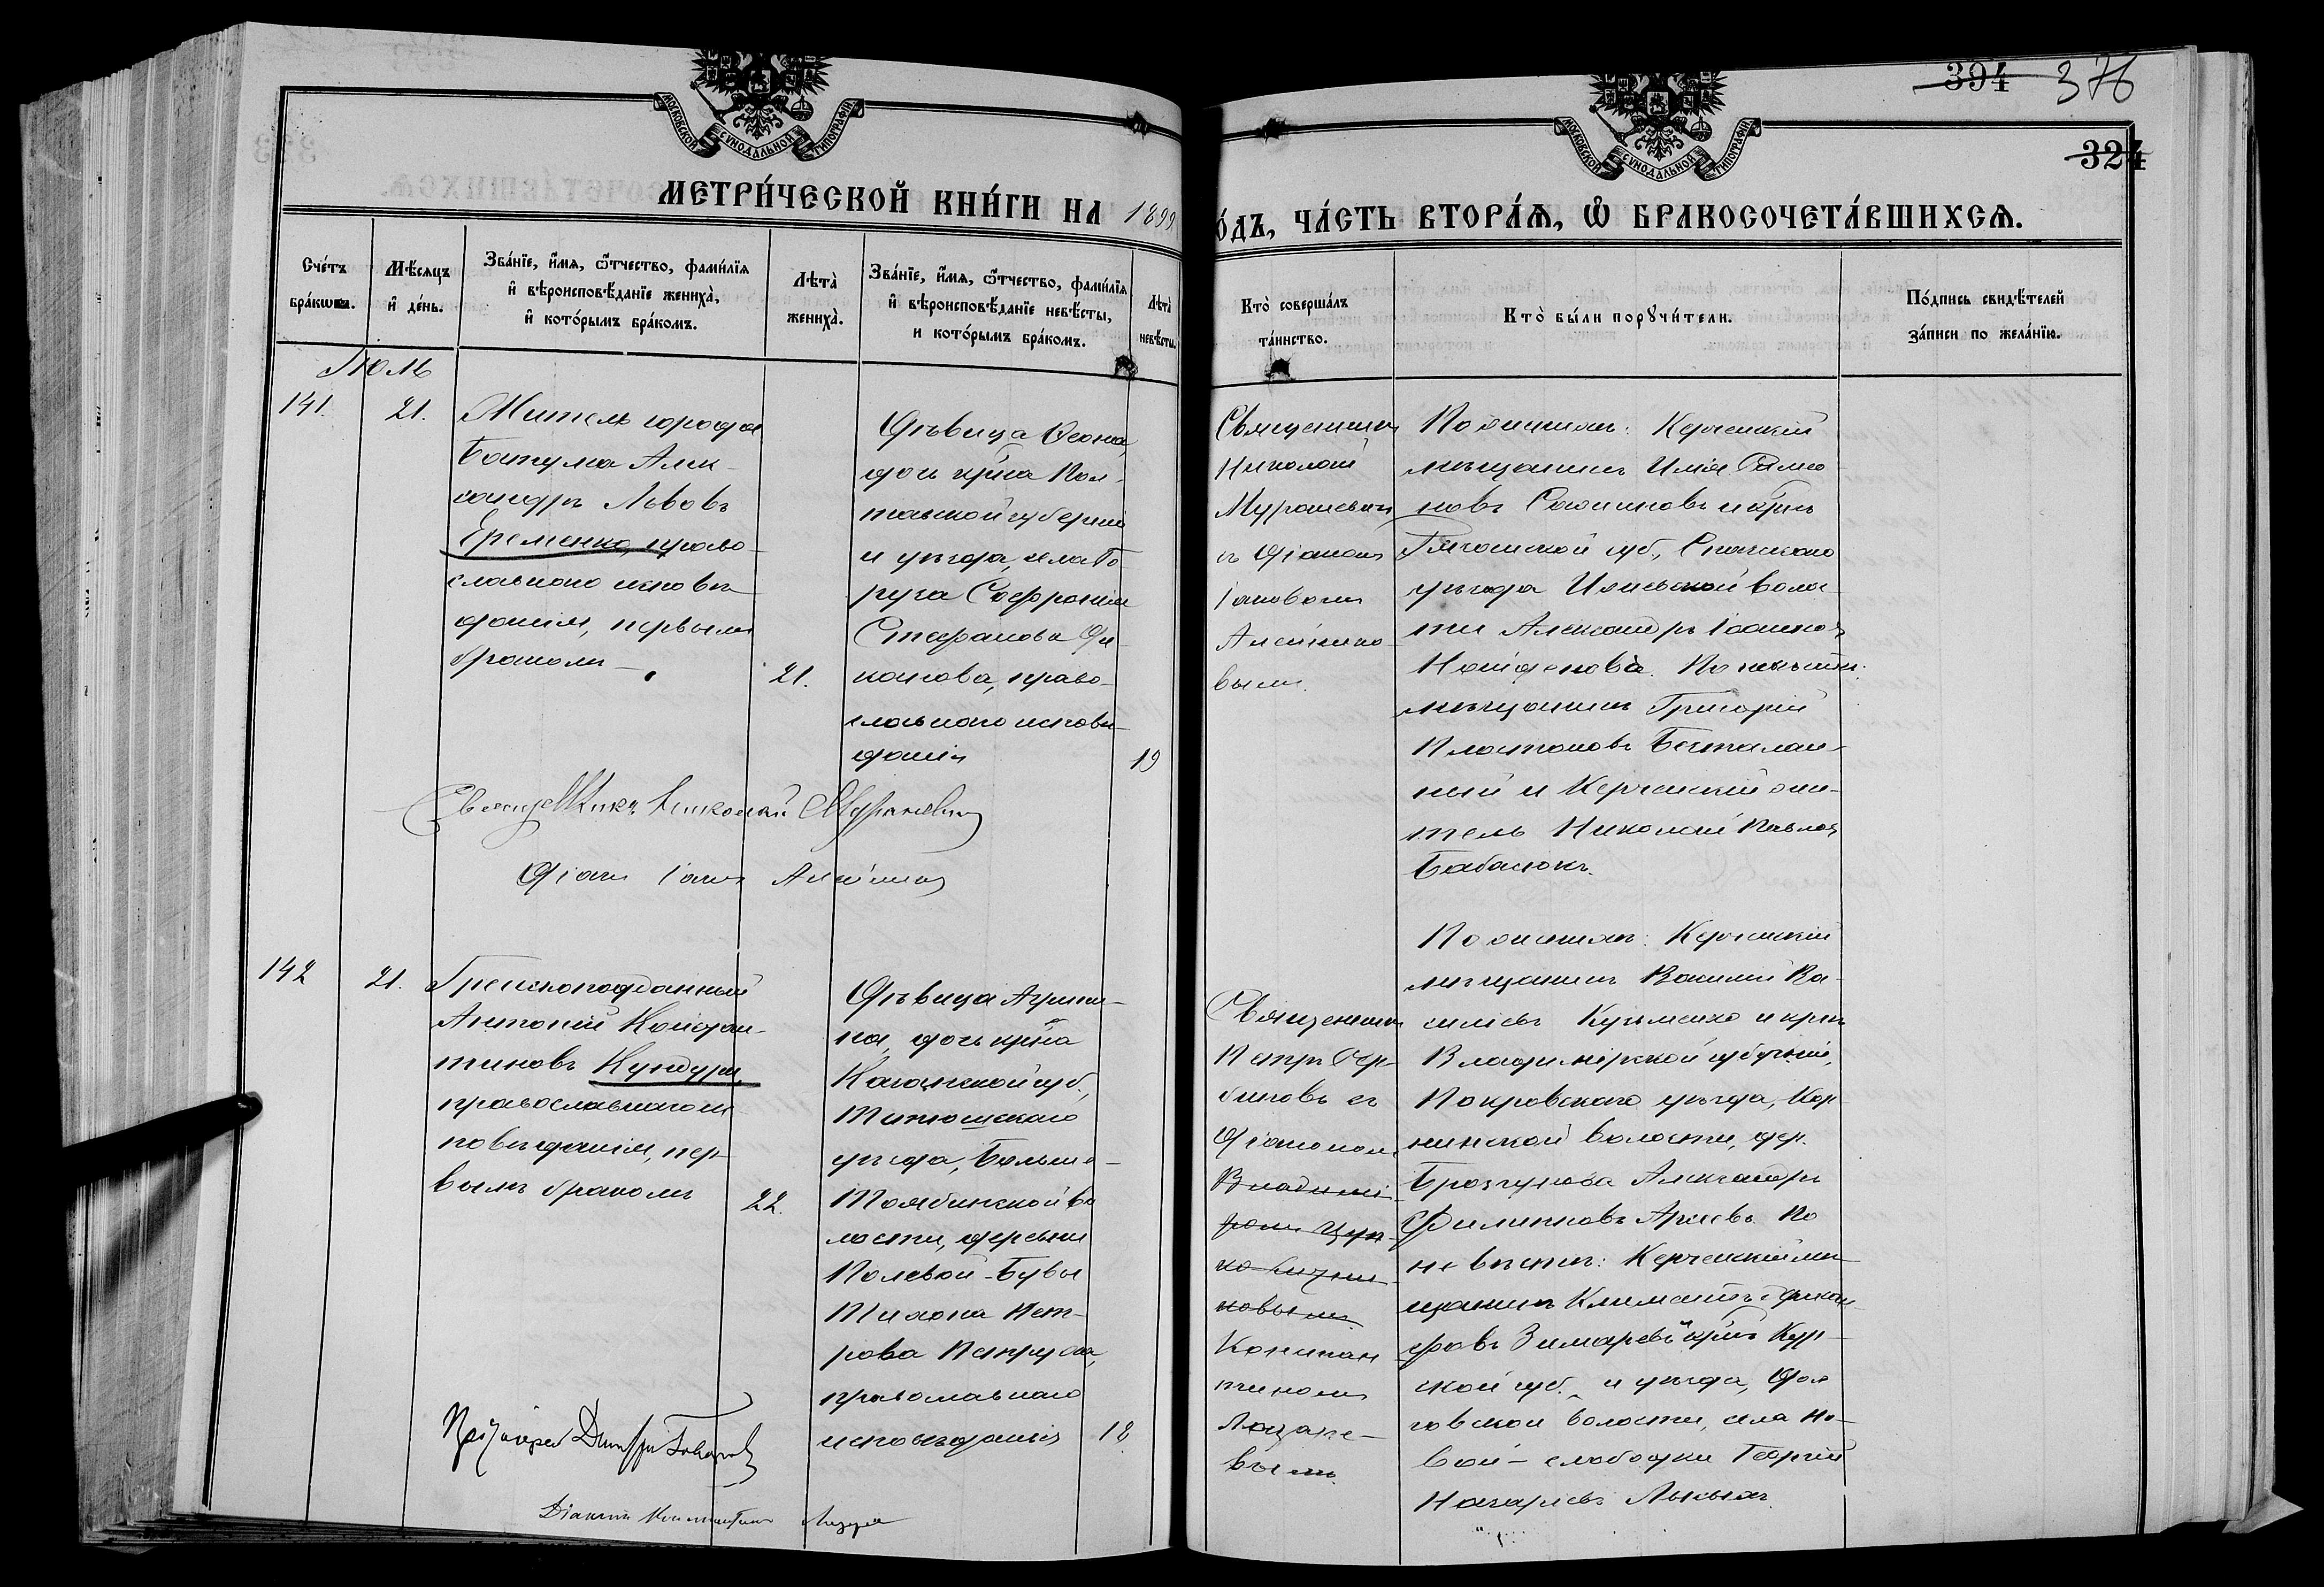 394 376
324
МОСКОВСКОЙ СѴНОДАЛЬНОЙ ТИПОГРАФІИ
МОСКОВСКОЙ СѴНОДАЛЬНОЙ ТИПОГРАФІИ
МЕТРИ́ЧЕСКОЙ КНИ́ГИ НА 1899
О́ДЪ, ЧА́СТЬ ВТОРА́Ѧ, Ѽ БРАКОСОЧЕТА́ВШИХСѦ.
Сче́тъ бра́кѡвъ.
Мѣ́сяцъ и҆ де́нь.
Зва́нїе, и҆́мѧ, ѻ҆́тчество, фами́лїѧ и҆ вѣроисповѣ́данїе жениха̀, и҆ кото́рымъ бра́комъ.
Лѣта̀ жениха̀.
Зва́нїе, и҆́мѧ, ѻ҆́тчество, фами́лїѧ и҆ вѣроисповѣ́данїе невѣ́сты, и кото́рымъ бра́комъ.
Лѣта̀ невѣ́сты.
Кто̀ соверша́лъ та́инство.
Кто̀ бы́ли порꙋчи́тели.
По́дпись свидѣ́телей за́писи по жела́нїю.
Іюль
141.
21.
Житель города
Батума Алек-
сандръ Львовъ
Еременко, право-
славнаго исповѣ-
данія, первымъ
бракомъ
21.
Дѣвица
дочь кр-на Пол-
тавской губерніи
и уѣзда, села
Софронія
Стефанова
право-
славнаго исповѣ-
данія
19
Священникъ
Николай
Мурашевич
съ Діакономъ
Іаковомъ
Алейнико-
вымъ.
По женихѣ: Керченскій
мѣщанинъ Илія
новъ и кр-нъ
губ., Спасскаго
уѣзда волос-
ти Александръ Іоанновъ
Найденовъ. По невѣстѣ:
мѣщанинъ Григорій
Платоновъ Безталан-
ный и Керченскій жи-
тель Николай Павловъ
Бабасюкъ.
Священникъ Николай Мурашевич
Діак. Іаковъ Алейников
142
21.
Грекоподданный
Антоній Констан-
тиновъ Кундури,
православнаго ис-
повѣданія, пер-
вымъ бракомъ
22.
Дѣвица Агрипи-
на, дочь кр-на
Казанской губ.,
Тетюшскаго
уѣзда, Больше-
Тоябинской во-
лости, деревни
Полевой-Бувы
Тихона Пет-
рова
православнаго
исповѣданія
18.
Священникъ
Петръ Сер-
биновъ съ
Діакономъ
Владимі-
ромъ
Констан-
тиномъ
Лазаре-
вымъ.
По женихѣ: Керченскій
мѣщанинъ Василій Ва-
сильевъ Кузьменко и кр-нъ
Владимірской губерніи,
Покровскаго уѣзда,
нинской волости, дер.
Александръ
Филипповъ По
невѣстѣ: Керченскій мѣ-
щанинъ Климентъ
Зимаревъ и кр-нъ Кур-
ской губ. и уѣзда,
волости, села Но-
вой-слободки Георгій
Назарьевъ Лыкинъ.
Протоіерей Димитрій
Діаконъ Константинъ Лазаре